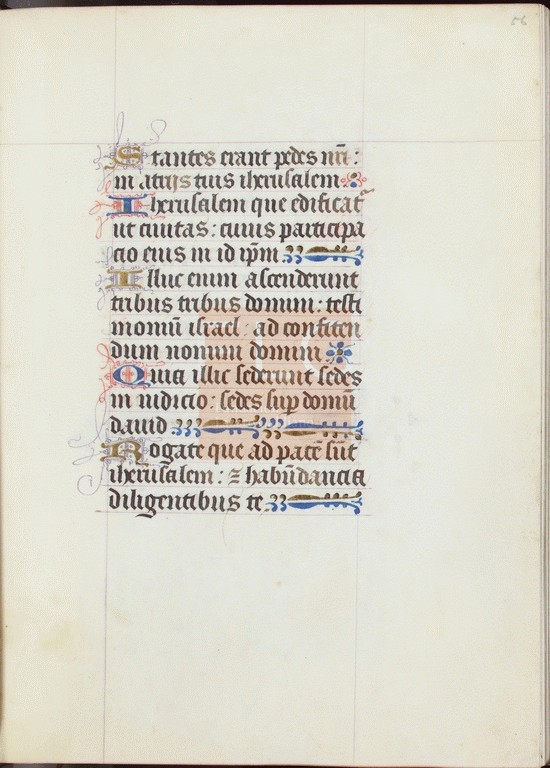 56
Stantes erant pedes nr̄i :
in atrijs tuis iherusalem
Iherusalem que edificat᷑
ut ciuitas : cuius participa
cio eius in id ip̄m
Illuc enim ascenderunt
tribus tribus domini : testi
moniū israel : ad confiten
dum nomini domini
Quia illic sederunt sedes
in iudicio : sedes sup̱ domū
dauid
Rogate que ad pacē sūt
iherusalem : ⁊ habūdancia
diligentibus te